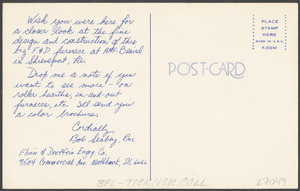 Wish you were here for
a closer look at the fine
design and construction of this
big F&D furnace at AMF Beaird
in Shreveport, La.
Drop me a note if you
want to see more - on
roller hearths, in-and-out
furnaces, etc. I'll send you
a color brochure.
Cordially,
Bob
Flinn & Dreffein Engrg. Co.
3504 Commercial Ave. Northbrook, Ill. 60062
PLACE
STAMP
HERE
POST-CARD
BPL-TICHNOR COLL
27049